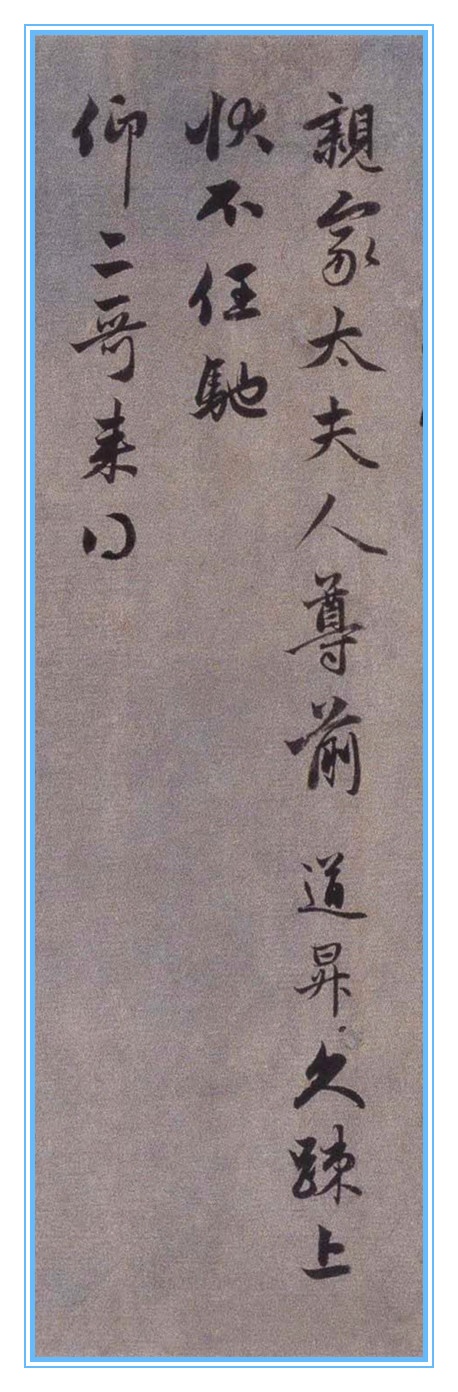 親家太夫人尊前 道昇久踈上
状不任馳
仰二哥来